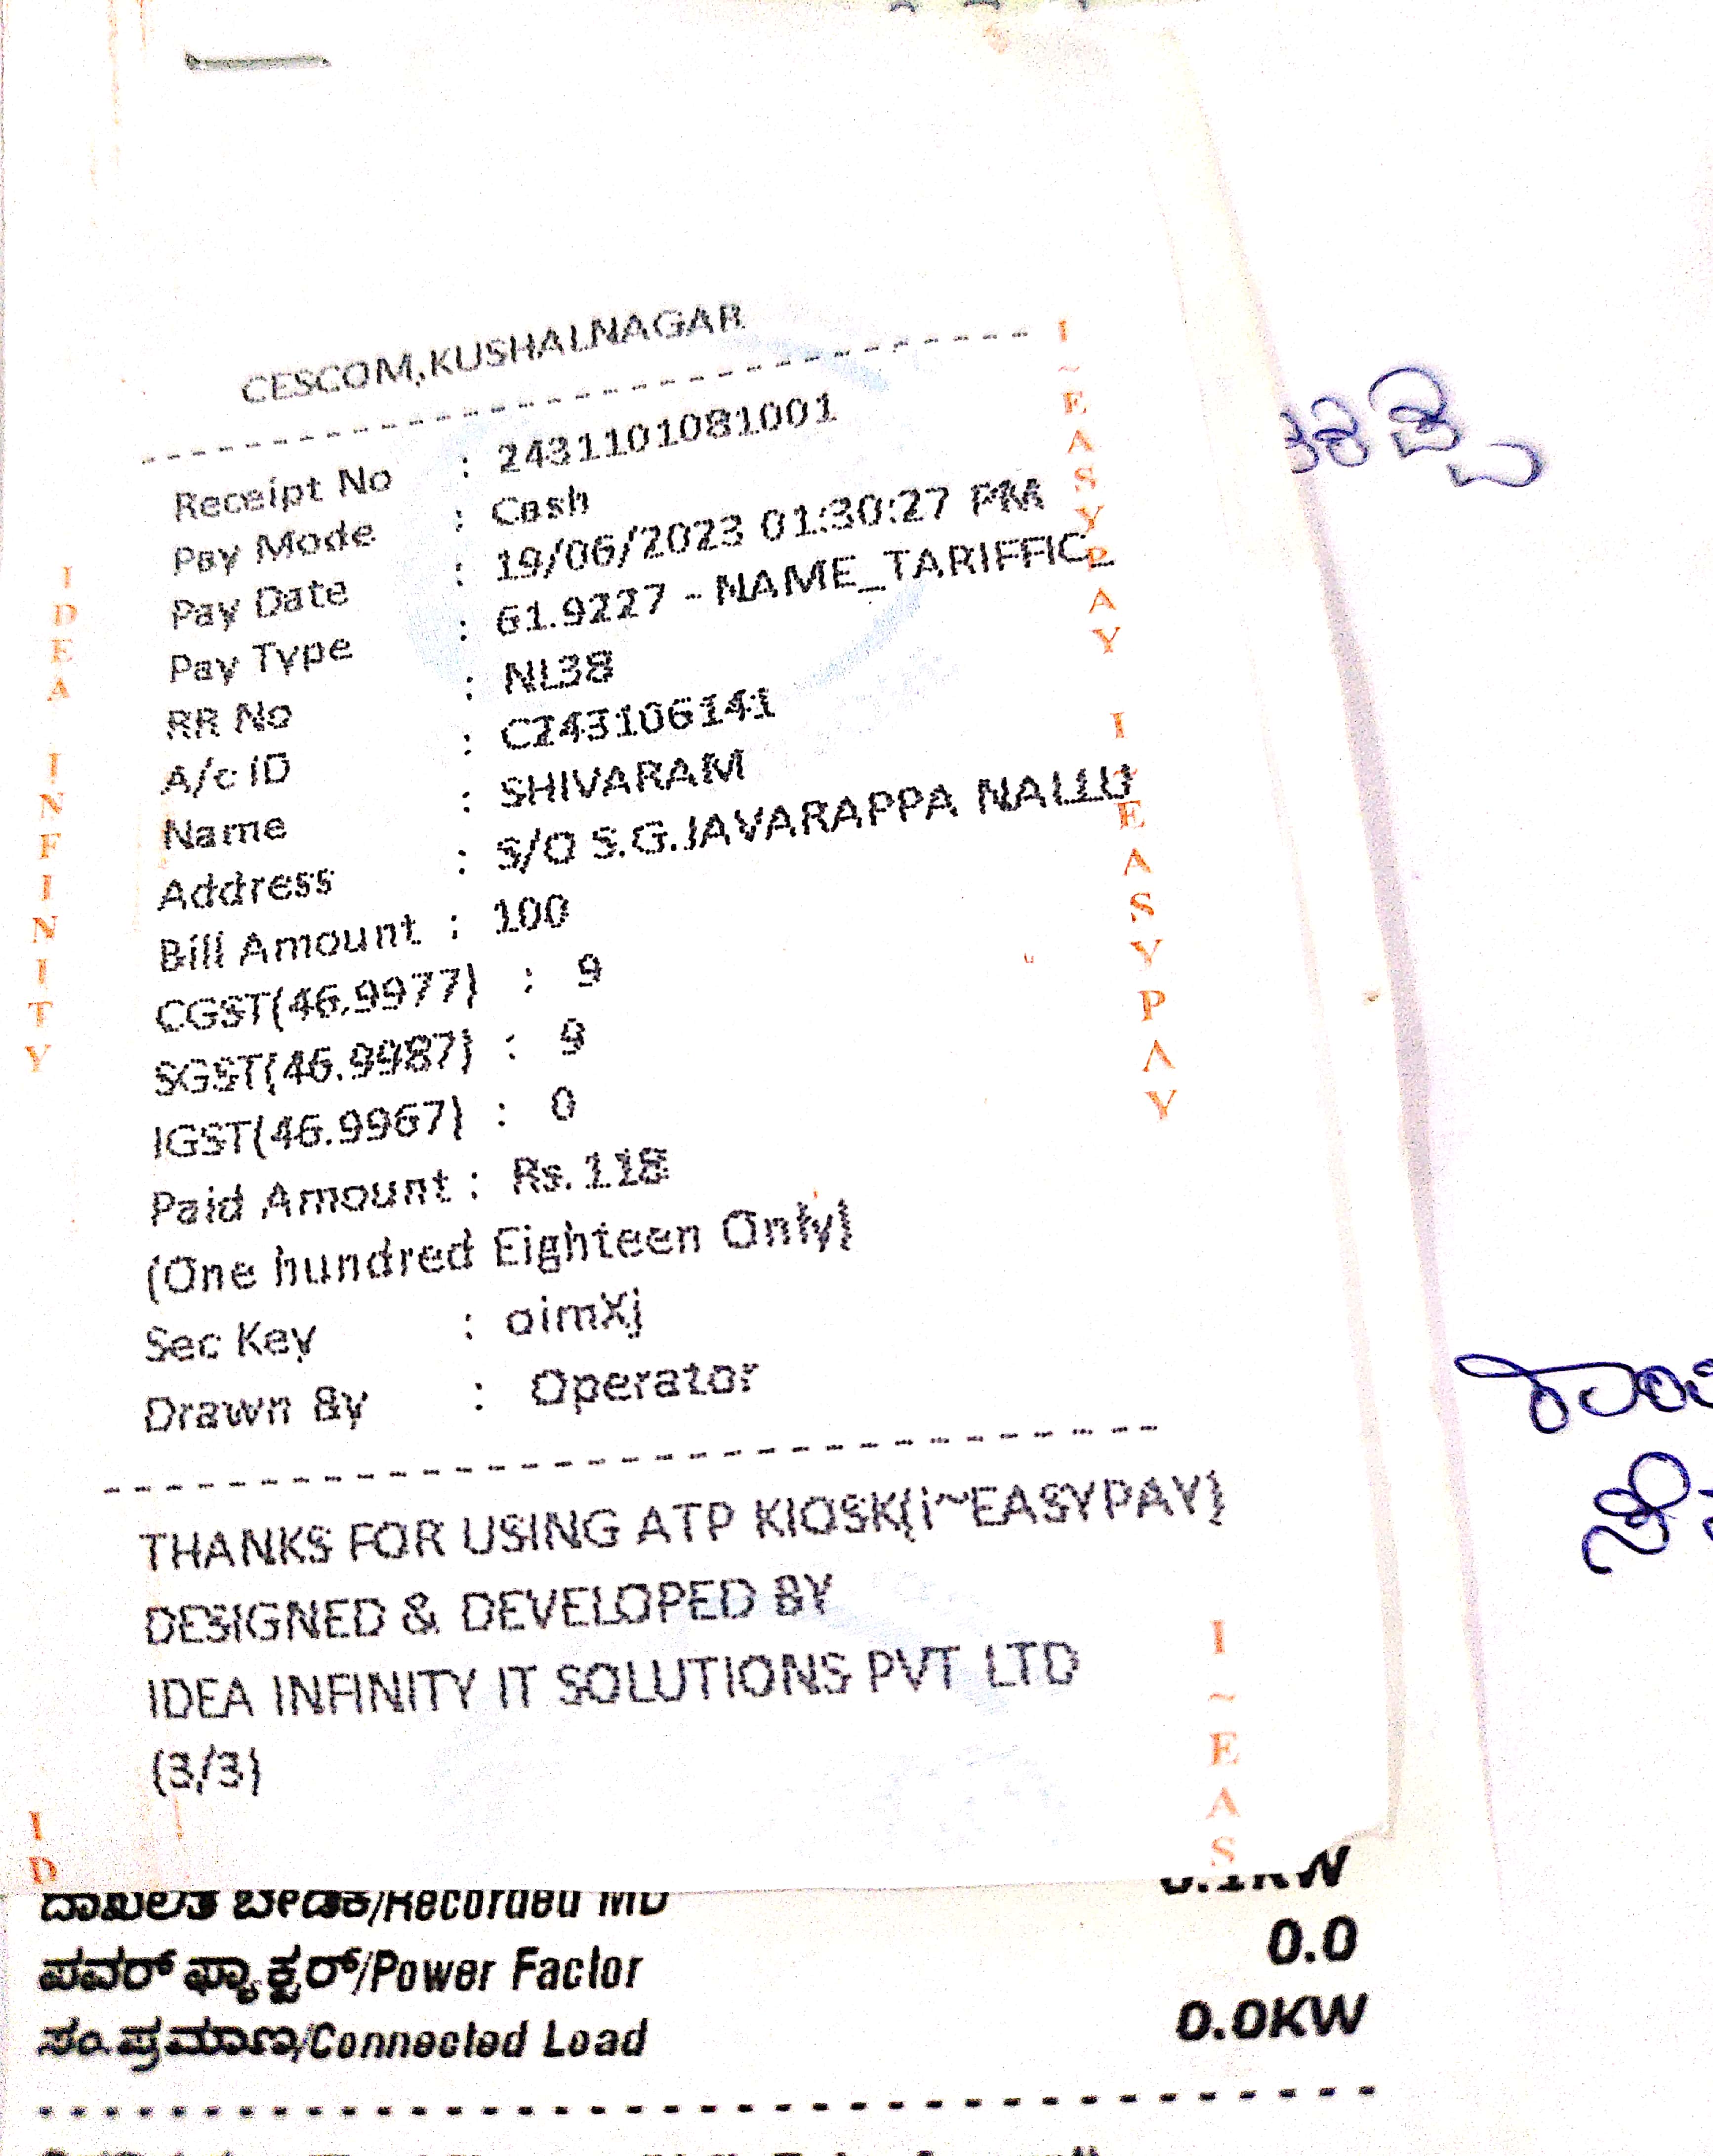 CESCOM,KUSHALNAGAR
Receipt No : 2431101081001
Pay Mode : Cash
Pay Date : 19/06/2023 01:30:27 PM
Pay Type : 61.9227 - NAME_TARIFFIC_
RR No : NL38
A/c ID : C243106141
Name : SHIVARAM
Address : S/O S.G.JAVARAPPA NALLU
Bill Amount : 100
CGST(46.9977) : 9
SGST(46.9987) : 9
IGST(46.9967) : 0
Paid Amount : Rs.118
(One hundred Eighteen Only)
Sec Key : oimXj
Drawn By : Operator
THANKS FOR USING ATP KIOSK(i~EASYPAY)
DESIGNED & DEVELOPED BY
IDEA INFINITY IT SOLUTIONS PVT LTD
(3/3)
IDEA INFINITY
I~EASYPAY I~EASYPAY
I~EAS
ID
ದಾಖಲಿತ ಬೇಡಿಕೆ/Recorded MD 0.1KW
ಪವರ್ ಫ್ಯಾಕ್ಟರ್/Power Factor 0.0
ಸಂ.ಪ್ರಮಾಣ/Connected Load 0.0KW